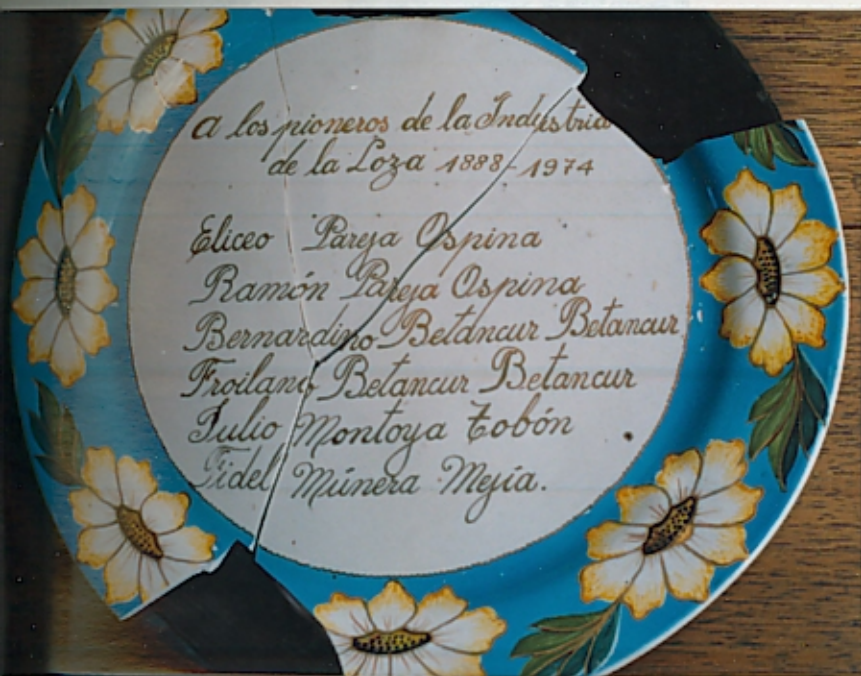 A los pioneros de la Industria
de la Loza 1888-1974
Eliceo Pareja Ospina
Ramón Pareja Ospina
Bernardino Betancur Betancur
Froilano Betancur Betancur
Julio Montoya Tobón
Fidel Múnera Mejía.